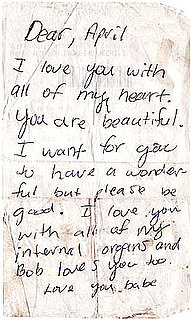 Dear, April
I love you with
all of my heart.
You are beautiful.
I want for you
to have a wonder-
ful but please be
good. I love you
with all of my
internal organs and
Bob loves you too.
Love you babe